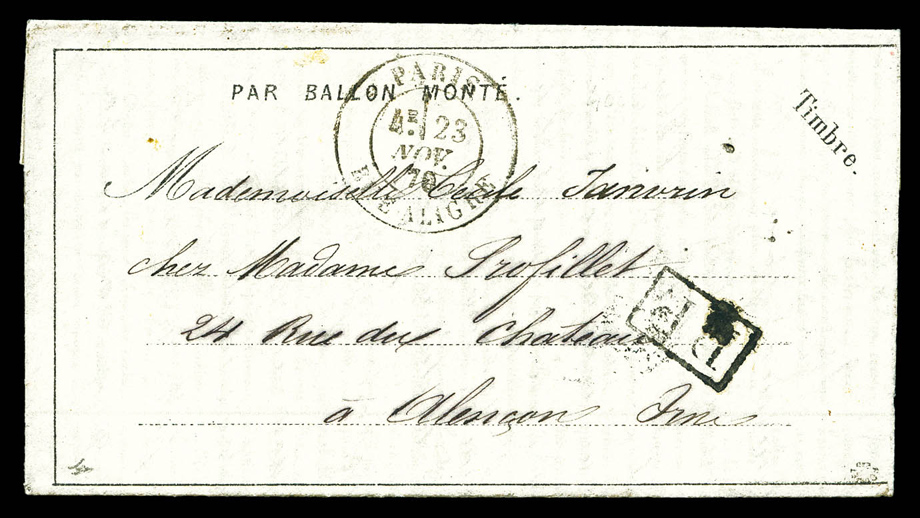 PAR BALLON MONTÉ.
PARIS
4E 23
NOV.
70
R. D'ALIGRE
Timbre.
Mademoiselle Cécile Janvrin
chez Madame Profillet
24 Rue du Chateau
à Alençon Orne